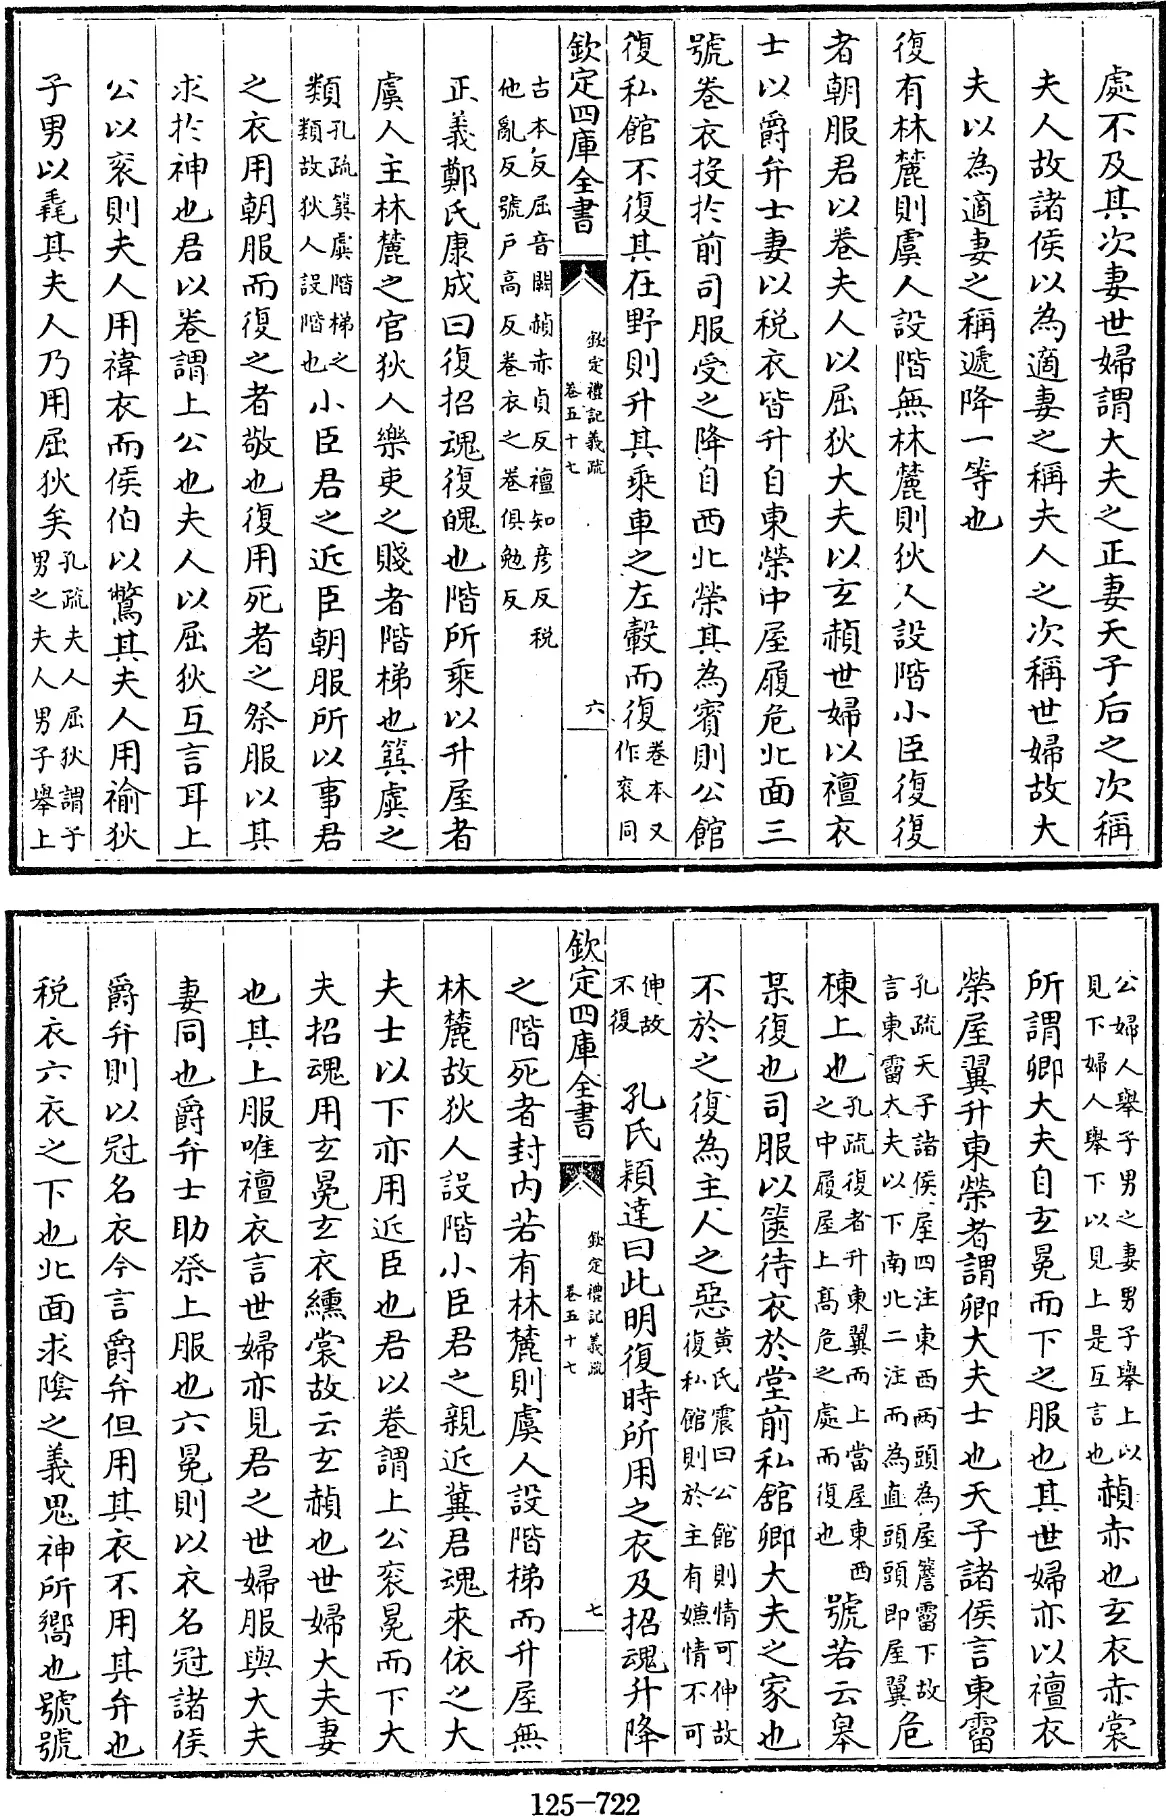 處不及其次妻世婦謂大夫之正妻天子后之次稱
夫人故諸侯以為適妻之稱夫人之次稱世婦故大
夫以為適妻之稱遞降一等也
復有林麓則虞人設階無林麓則狄人設階小臣復復
者朝服君以卷夫人以屈狄大夫以玄赬世婦以襢衣
士以爵弁士妻以稅衣皆升自東榮中屋履危北面三
號卷衣投於前司服受之降自西北榮其為賓則公館
復私館不復其在野則升其乘車之左轂而復卷本又
作衮同
欽定四庫全書
欽定禮記義疏
卷五十七
六
古本反屈音闕赬赤貞反襢知彦反稅
他亂反號戶高反卷衣之卷俱勉反
正義鄭氏康成曰復招魂復魄也階所乘以升屋者
虞人主林麓之官狄人樂吏之賤者階梯也簨虡之
類孔疏簨虡階梯之
類故狄人設階也小臣君之近臣朝服所以事君
之衣用朝服而復之者敬也復用死者之祭服以其
求於神也君以卷謂上公也夫人以屈狄互言耳上
公以衮則夫人用褘衣而侯伯以鷩其夫人用褕狄
子男以毳其夫人乃用屈狄矣孔疏夫人屈狄謂子
男之夫人男子舉上
公婦人舉子男之妻男子舉上以
見下婦人舉下以見上是互言也赬赤也玄衣赤裳
所謂卿大夫自玄冕而下之服也其世婦亦以襢衣
榮屋翼升東榮者謂卿大夫士也天子諸侯言東霤
孔疏天子諸侯屋四注東西兩頭為屋簷霤下故
言東霤大夫以下南北二注而為直頭頭即屋翼危
棟上也孔疏復者升東翼而上當屋東西
之中履屋上高危之處而復也號若云皋
某復也司服以篋待衣於堂前私館卿大夫之家也
不於之復為主人之惡黃氏震曰公館則情可伸故
復私館則於主有嫌情不可
伸故
不復孔氏穎達曰此明復時所用之衣及招魂升降
欽定四庫全書
欽定禮記義疏
卷五十七
七
之階死者封內若有林麓則虞人設階梯而升屋無
林麓故狄人設階小臣君之親近冀君魂來依之大
夫士以下亦用近臣也君以卷謂上公衮冕而下大
夫招魂用玄冕玄衣纁裳故云玄赬也世婦大夫妻
也其上服唯襢衣言世婦亦見君之世婦服與大夫
妻同也爵弁士助祭上服也六冕則以衣名冠諸侯
爵弁則以冠名衣今言爵弁但用其衣不用其弁也
稅衣六衣之下也北面求陰之義鬼神所嚮也號號
125-722